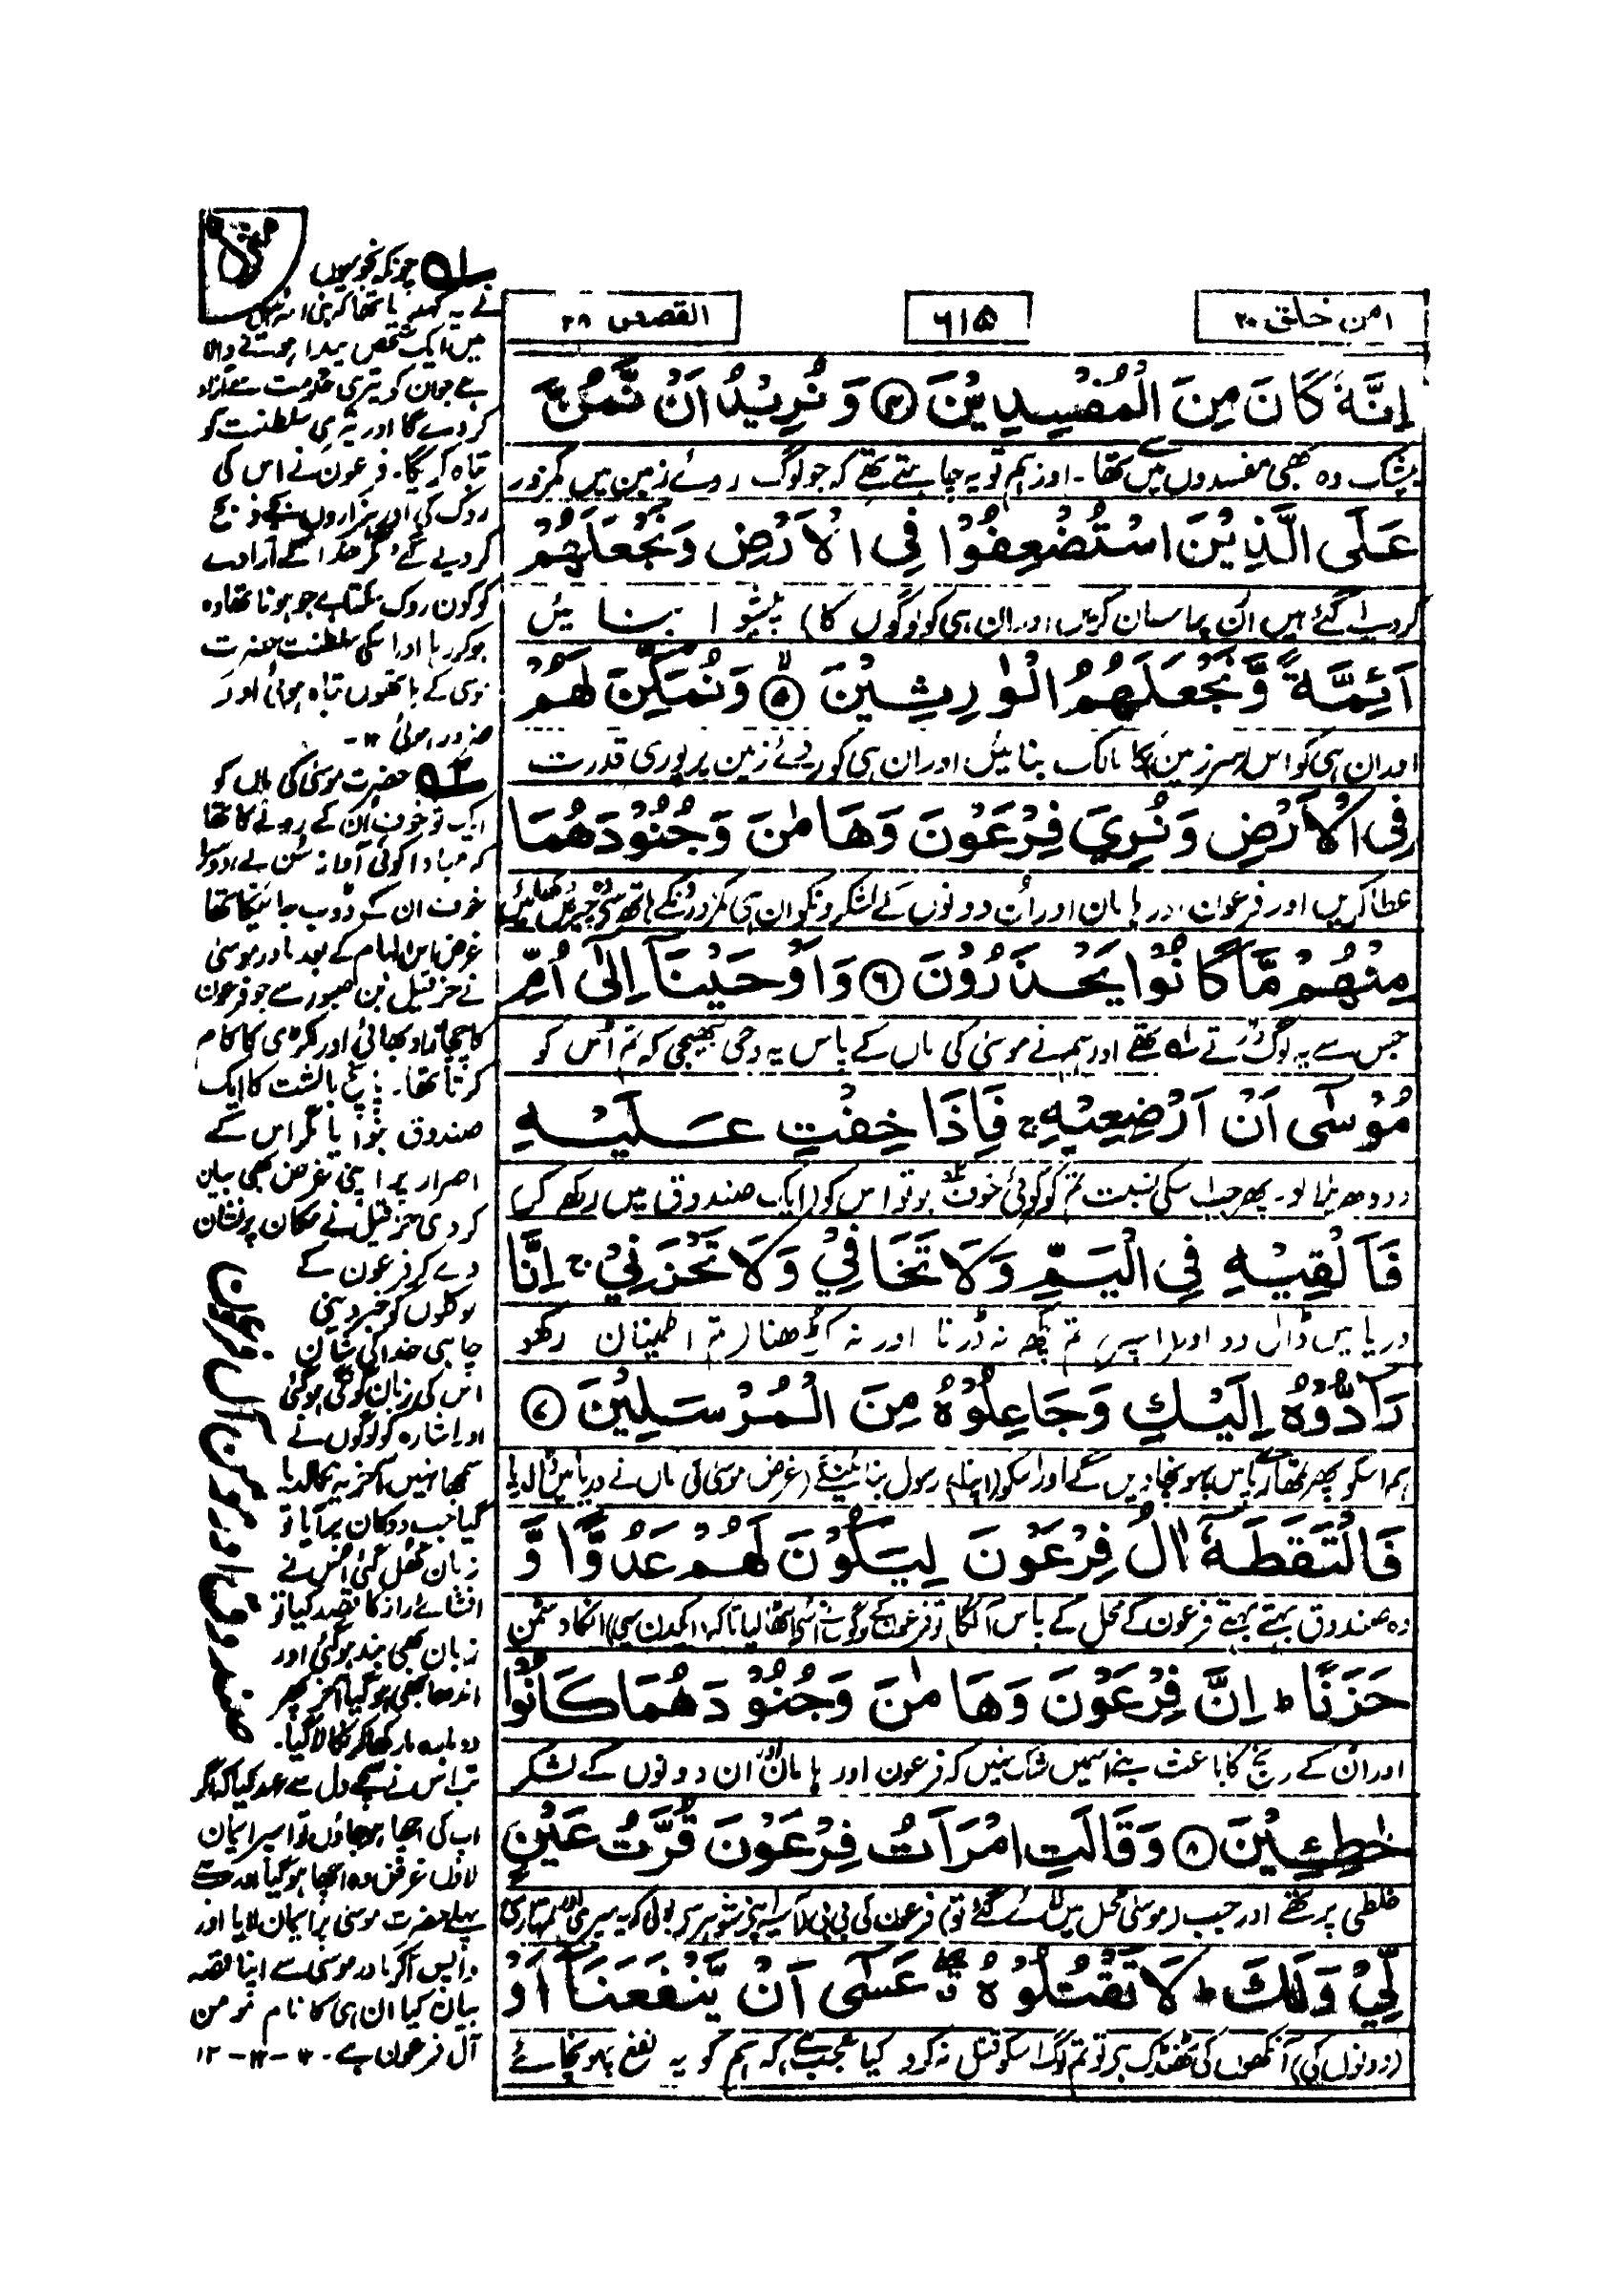 امن خلق ۲۰
۶۱۵
القصص ۲۸
اِنَّهٗ كَانَ مِنَ الْمُفْسِدِيْنَ ۴ وَ نُرِيْدُ اَنْ نَّمُنَّ
بیشک وہ بھی مفسدوں میں تھا۔ اور ہم تو یہ چاہتے تھے کہ جو لوگ روئے زمین میں کمزور
عَلَى الَّذِيْنَ اسْتُضْعِفُوْا فِى الْاَرْضِ وَ نَجْعَلَهُمْ
کردیے گئے ہیں ان پر احسان کریں اور ان ہی کو (لوگوں کا) پیشوا بنائیں
اَئِمَّةً وَّ نَجْعَلَهُمُ الْوٰرِثِيْنَ ۵ وَ نُمَكِّنَ لَهُمْ
اور ان ہی کو اس (سرزمین) کا مالک بنائیں اور ان ہی کو روئے زمین پر پوری قدرت
فِى الْاَرْضِ وَ نُرِيَ فِرْعَوْنَ وَ هَامٰنَ وَ جُنُوْدَهُمَا
عطا کریں اور فرعون اور ہامان اور اُن دونوں کے لشکرونکو ان ہی کمزورونکے ہاتھ سے وہ چیزیں دکھائیں
مِنْهُمْ مَّا كَانُوْا يَحْذَرُوْنَ ۶ وَ اَوْحَيْنَآ اِلٰٓى اُمِّ
جس سے یہ لوگ ڈرتے تھے اور ہم نے موسیٰ کی ماں کے پاس یہ وحی بھیجی کہ تم اُس کو
مُوْسٰٓى اَنْ اَرْضِعِيْهِ ج فَاِذَا خِفْتِ عَلَيْهِ
دودھ پلا لو۔ پھر جب اسکی نسبت تم کو کوئی خوف ہو تو اس کو (ایک صندوق میں رکھ کر)
فَاَلْقِيْهِ فِى الْيَمِّ وَ لَا تَخَافِيْ وَ لَا تَحْزَنِيْ ج اِنَّا
دریا میں ڈال دو اور (اسپر) تم کچھ نہ ڈرنا اور نہ کُڑھنا (تم اطمینان رکھو
رَآدُّوْهُ اِلَيْكِ وَ جَاعِلُوْهُ مِنَ الْمُرْسَلِيْنَ ۷
ہم اسکو پھر تمھارے پاس پہونچا دیں گے اور اسکو (اپنا) رسول بنائینگے (غرض موسیٰ کی ماں نے دریا میں ڈال دیا
فَالْتَقَطَهٗٓ اٰلُ فِرْعَوْنَ لِيَكُوْنَ لَهُمْ عَدُوًّا وَّ
وہ صندوق بہتے بہتے فرعون کے محل کے پاس آلگا) تو فرعون کے لوگوں نے اسے اٹھا لیا تاکہ (ایکدن یہی) انکا دشمن
حَزَنًا ط اِنَّ فِرْعَوْنَ وَ هَامٰنَ وَ جُنُوْدَهُمَا كَانُوْا
اور اُن کے رنج کا باعث بنے اسمیں شک نہیں کہ فرعون اور ہامان اور ان دونوں کے لشکر
خٰطِئِيْنَ ۸ وَ قَالَتِ امْرَاَتُ فِرْعَوْنَ قُرَّتُ عَيْنٍ
غلطی پر تھے اور جب (موسیٰ محل میں لائے گئے تو) فرعون کی بی بی (آسیہ اپنے شوہر سے) بولی کہ یہ میری اور تمہاری
لِّيْ وَ لَكَ ط لَا تَقْتُلُوْهُ عَسٰٓى اَنْ يَّنْفَعَنَآ اَوْ
(دونوں کی) آنکھوں کی ٹھنڈک ہے تو تم لوگ اسکو قتل نہ کرو کیا عجب ہے کہ ہم کو یہ نفع پہونچائے
۱ چونکہ نجومیوں
نے یہ کہدیا تھا کہ بنی اسرائیل
میں ایک شخص پیدا ہونے والا
ہے جو ان کو تیری حکومت سے آزاد
کردے گا اور تیری سلطنت کو
تباہ کریگا۔ فرعون نے اس کی
روک کی اور ہزاروں بچے ذبح
کردیے گئے مگر خدا کے ارادے
کو کون روک سکتا ہے جو ہونا تھا وہ
ہو کر رہا اور اسکی سلطنت حضرت
موسیٰ کے ہاتھوں تباہ ہوئی اور
ضرور ہوئی ۱۲-
۲ حضرت موسیٰ کی ماں کو
ایک تو خوف اُن کے رونے کا تھا
کہ مبادا کوئی آواز سُن لے، دوسرا
خوف ان کے ڈوب جانیکا تھا
غرض اس الہام کے بعد مادر موسیٰ
نے حزقیل بن صبور سے جو فرعون
کا چچا زاد بھائی اور لکڑی کا کام
کرتا تھا۔ پانچ بالشت کا ایک
صندوق بنوایا مگر اس کے
اصرار پر اپنی غرض بھی بیان
کردی حزقیل نے مکان پر نشان
دے کر فرعون کے
موکلوں کو خبر دینی
چاہی خدا کی شان
اس کی زبان گونگی ہوگئی
اور اشارہ کو لوگوں نے
سمجھا نہیں آخر یہ نکالدیا
گیا جب دوکان پر آیا تو
زبان کھل گئی اس نے
افشائے راز کا قصد کیا تو
زبان بھی بند ہوگئی اور
اندھا بھی ہوگیا آخر پھر
دوبارہ مار کھا کر نکالا گیا۔
تب اُس نے سچے دل سے عہد کیا کہ اگر
اب کی اچھا ہوجاؤں تو اسپر ایمان
لاؤں غرض وہ اچھا ہوگیا اور سب سے
پہلے حضرت موسیٰ پر ایمان لایا اور
واپس آکر مادر موسیٰ سے اپنا قصہ
بیان کیا ان ہی کا نام مومن
آل فرعون ہے۔ ۱۲-۱۲-۱۲
صندوق اور مومن آل فرعون